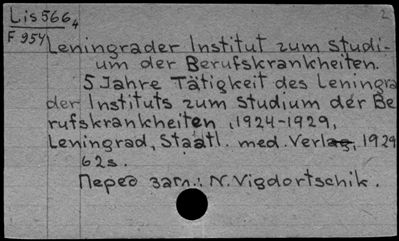 Lis 566₄ 2
F 954
Leningrader Institut zum Studi-
um der Berufskrankheiten.
5 Jahre Tätigkeit des Leningra
der Instituts zum Studium der Be
rufskrankheiten, 1924-1929,
Leningrad, Staatl. med. Verlag, 1929
62s.
Перед загл.: N. Vigdortschik.